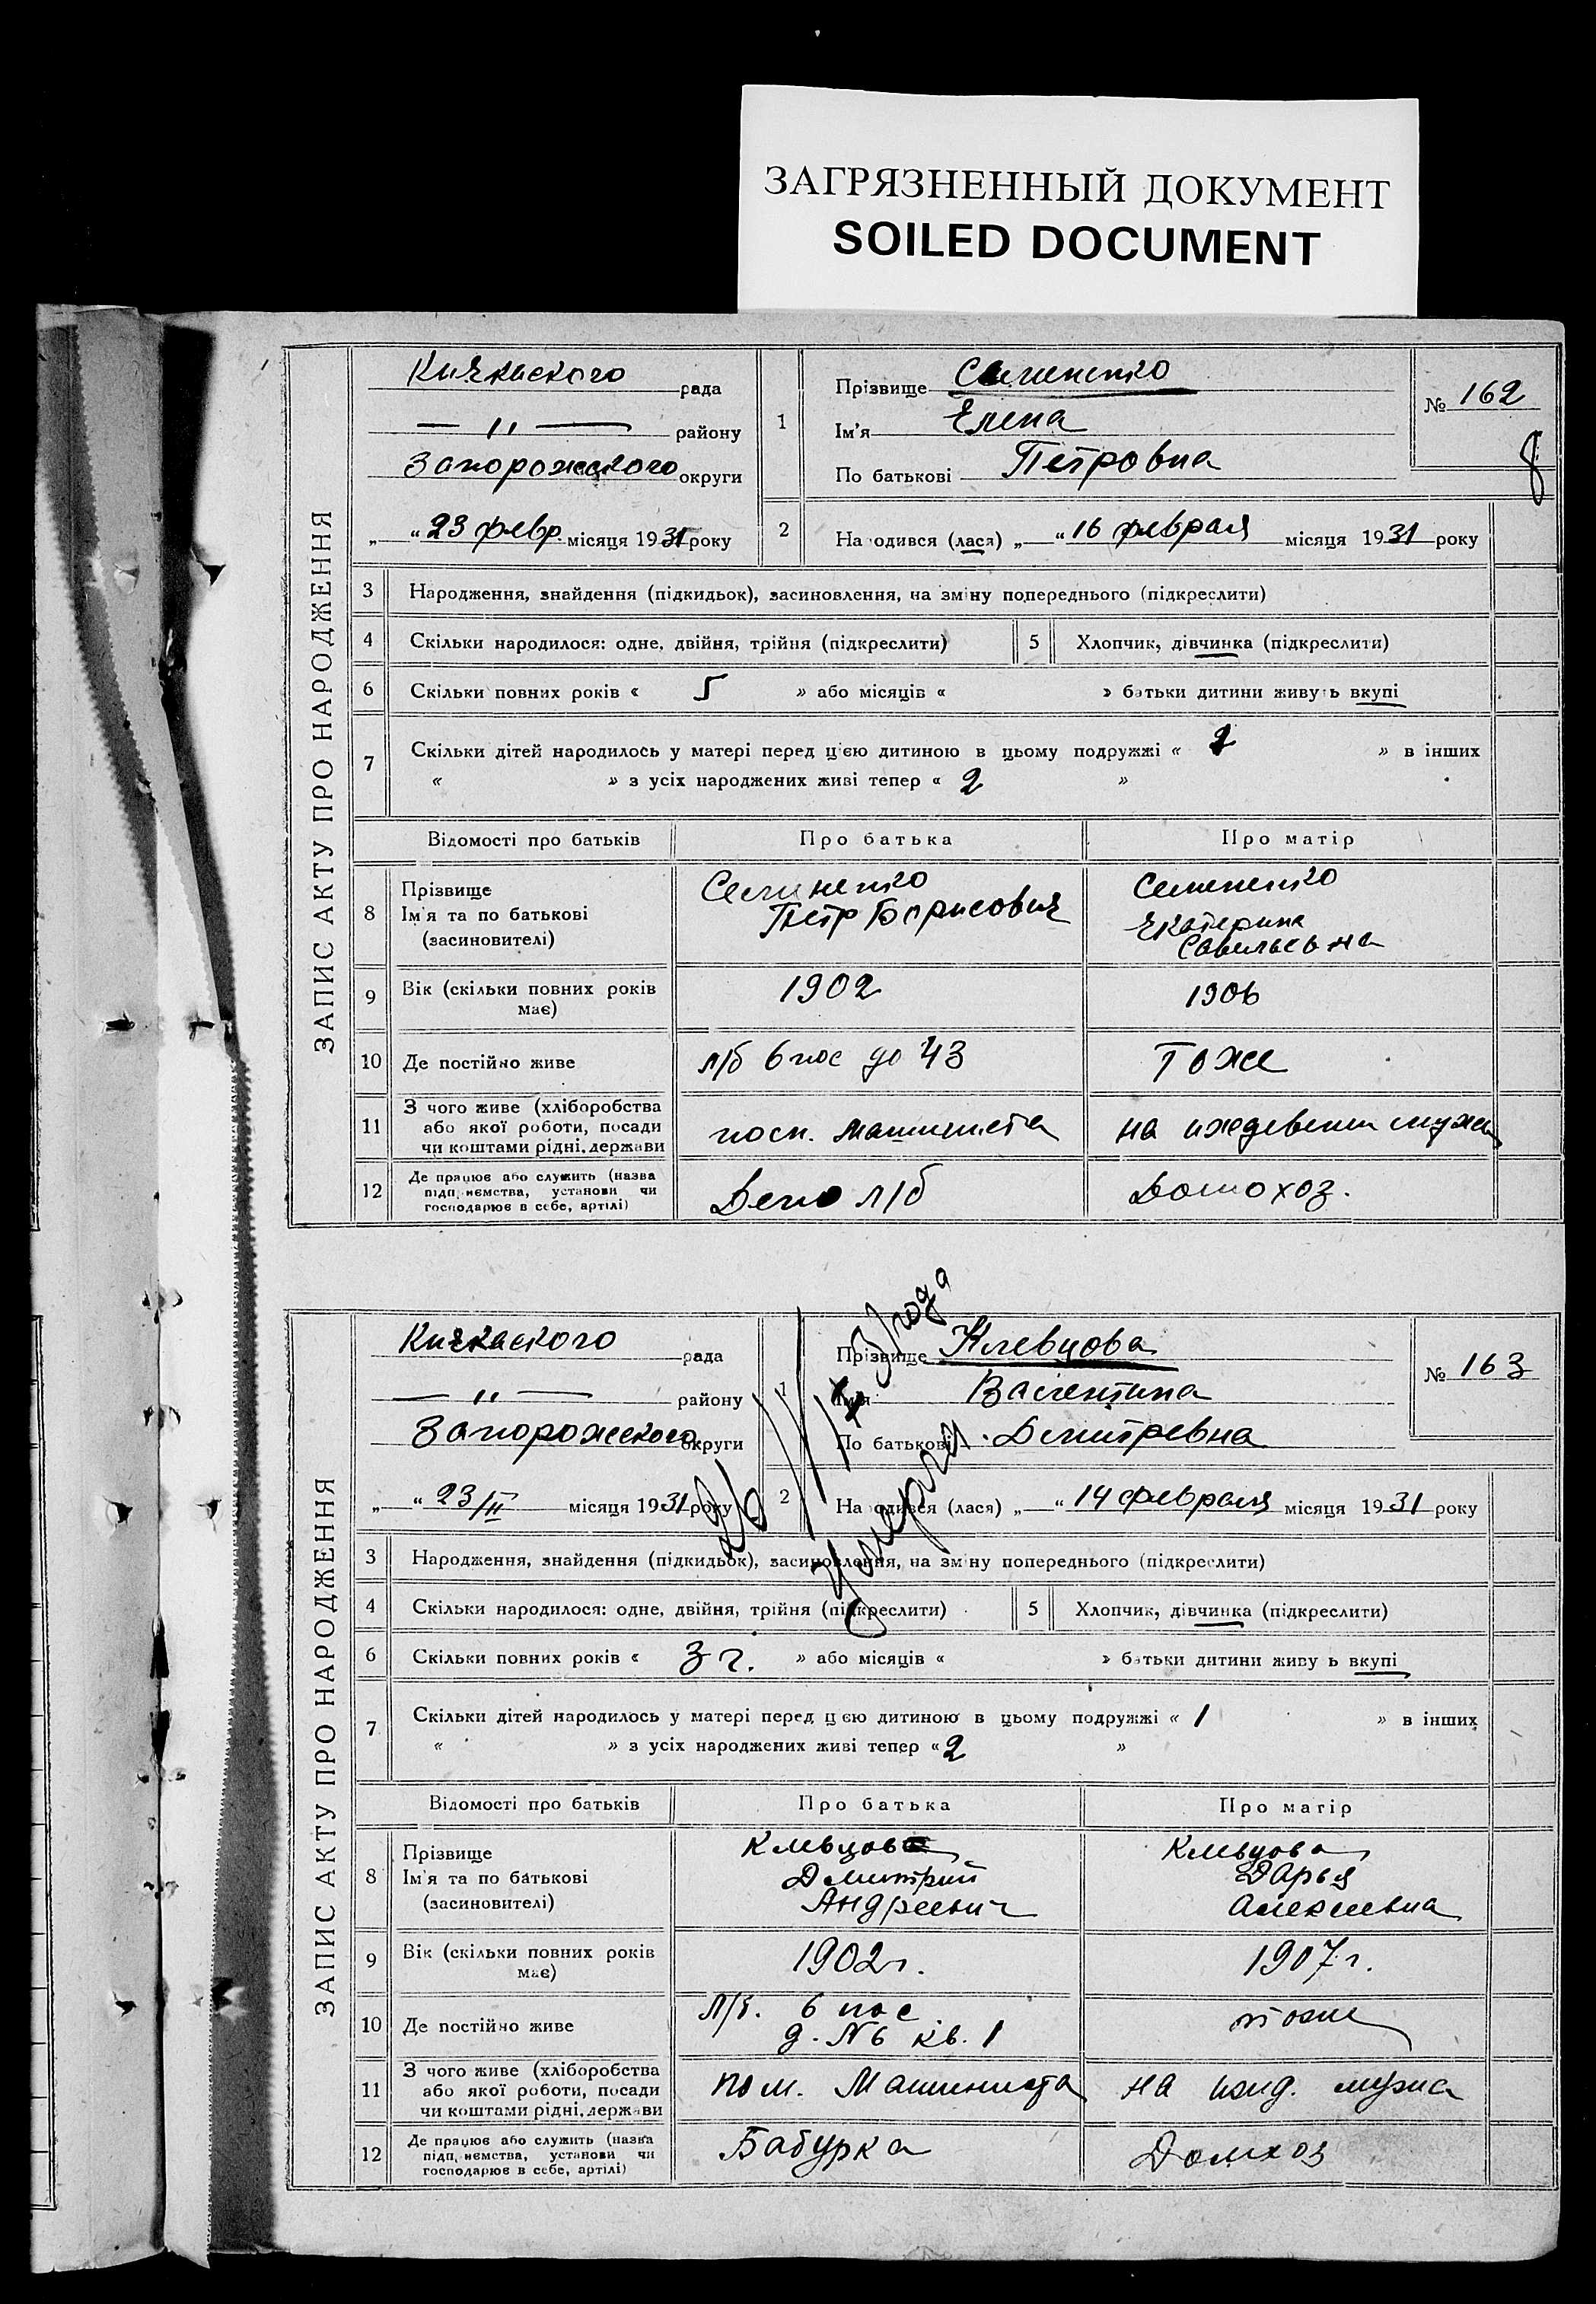 ЗАГРЯЗНЕННЫЙ ДОКУМЕНТ
SOILED DOCUMENT
ЗАПИС АКТУ ПРО НАРОДЖЕННЯ
Кичкаского рада
— " — району
Запорожского округи
„ “ 23 февр. місяця 1931 року
1
Прізвище Семененко
Ім'я Елена
По батькові Петровна
№ 162
8
2
На одився (лася) „ “ 16 февраля місяця 1931 року
3 Народження, знайдення (підкидьок), засиновлення, на зміну попереднього (підкреслити)
4 Скільки народилося: одне, двійня, трійня (підкреслити) 5 Хлопчик, дівчинка (підкреслити)
6 Скільки повних років « 5 » або місяців « » батьки дитини живуть вкупі
7 Скільки дітей народилось у матері перед цією дитиною в цьому подружжі « 2 » в інших
« » з усіх народжених живі тепер « 2 »
Відомості про батьків Про батька Про матір
8 Прізвище
Ім'я та по батькові
(засиновителі)
Семененко
Петр Борисович
Семененко
Екатерина
Савельевна
9 Вік (скільки повних років
має)
1902
1906
10 Де постійно живе
л/б 6 пос до 43
Тоже
11 З чого живе (хліборобства
або якої роботи, посади
чи коштами рідні, держави
пом. машиниста
на иждевении мужа
12 Де працює або служить (назва
підприємства, установи чи
господарює в себе, артілі)
Депо л/б
Домохоз.
ЗАПИС АКТУ ПРО НАРОДЖЕННЯ
Кичкаского рада
— " — району
Запорожского округи
„ “ 23/II місяця 1931 року
1
Прізвище Клевцова
Ім'я Валентина
По батькові Дмитревна
№ 163
2
На одився (лася) „ “ 14 февраля місяця 1931 року
Умерла
26/ 31 года
3 Народження, знайдення (підкидьок), засиновлення, на зміну попереднього (підкреслити)
4 Скільки народилося: одне, двійня, трійня (підкреслити) 5 Хлопчик, дівчинка (підкреслити)
6 Скільки повних років « 3 г. » або місяців « » батьки дитини живу ь вкупі
7 Скільки дітей народилось у матері перед цією дитиною в цьому подружжі « 1 » в інших
« » з усіх народжених живі тепер « 2 »
Відомості про батьків Про батька Про матір
8 Прізвище
Ім'я та по батькові
(засиновителі)
Клевцов
Дмитрий
Андреевич
Клевцова
Дарья
Алексеевна
9 Вік (скільки повних років
має)
1902 г.
1907 г.
10 Де постійно живе
л/б. 6 пос
д. N6 кв. 1
тоже
11 З чого живе (хліборобства
або якої роботи, посади
чи коштами рідні, держави
пом. Машиниста
на ижд. мужа
12 Де працює або служить (назва
підприємства, установи чи
господарює в себе, артілі)
Бабурка
Домхоз